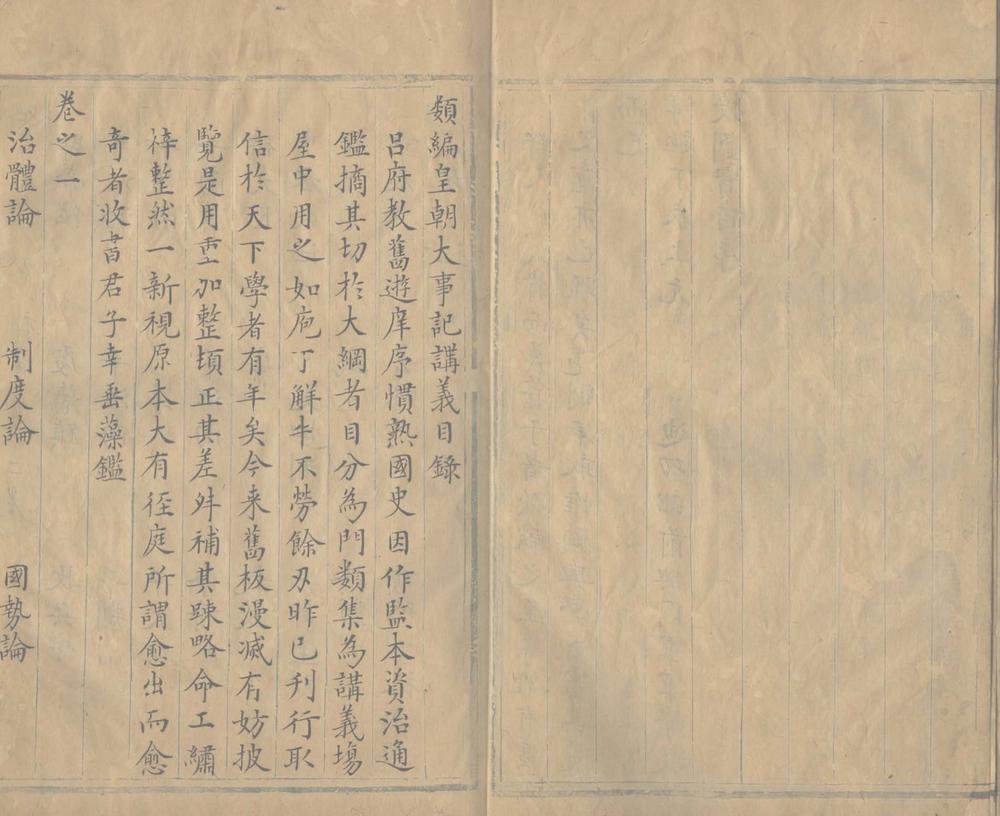 類編皇朝大事記講義目錄
呂府教舊遊庠序慣熟國史因作監本資治通
鑑摘其切於大綱者目分為門類集為講義場
屋中用之如庖丁解牛不勞餘刃昨已刋行取
信於天下學者有年矣今来舊板漫滅有妨披
覽是用重加整頓正其差舛補其踈略命工繡
梓整然一新視原本大有徑庭所謂愈出而愈
奇者收書君子幸垂藻鑑
卷之一
治體論 制度論 國勢論